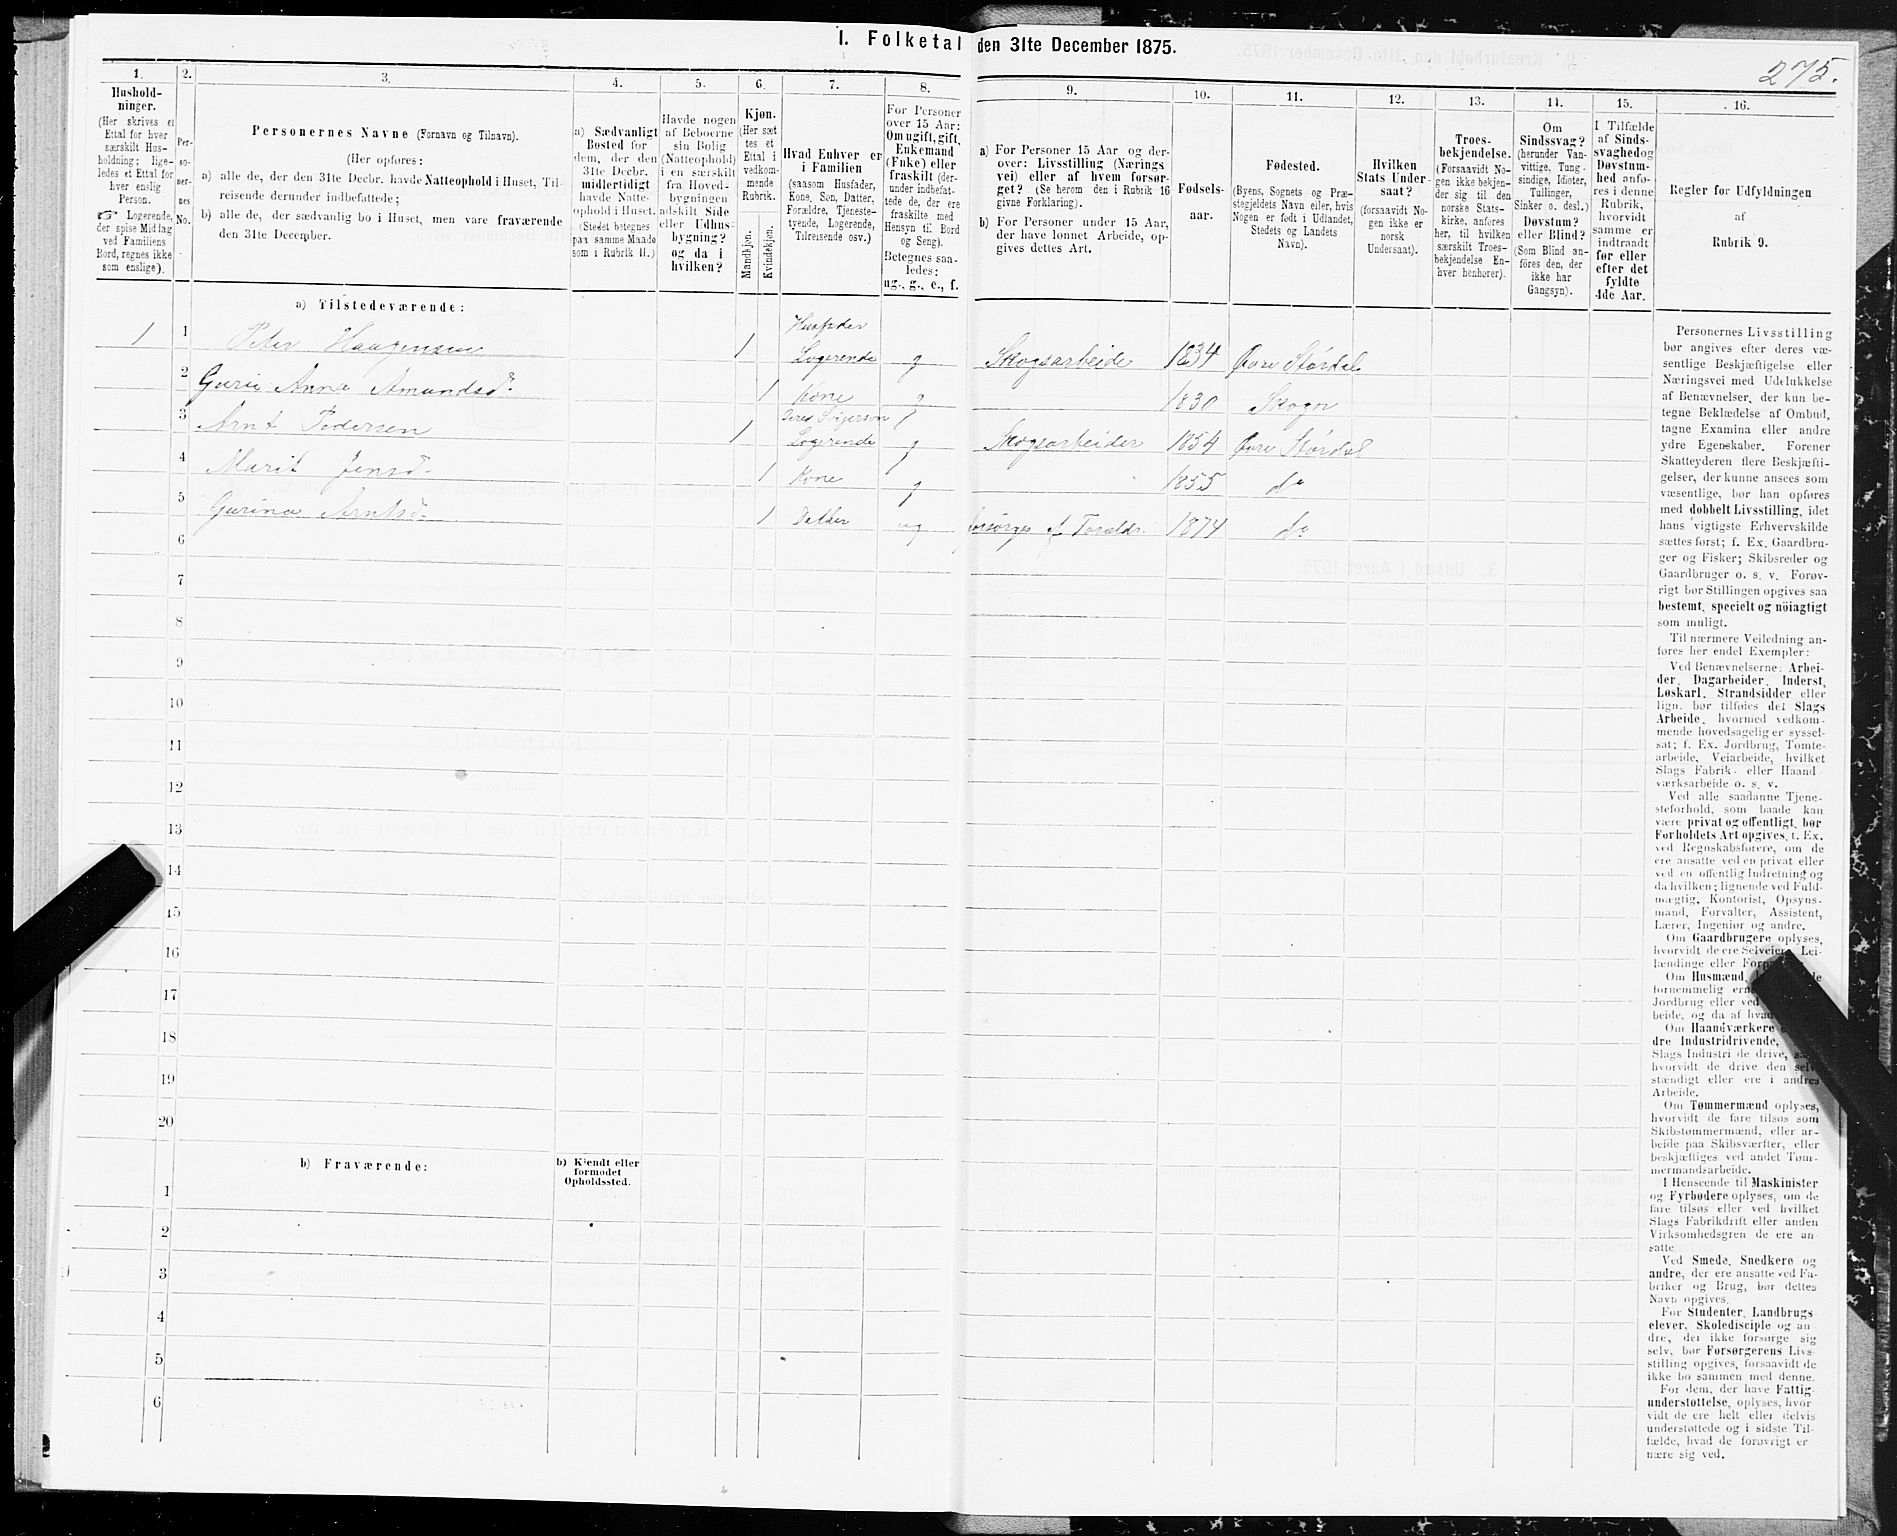 I. Folketal den 31te December 1875.
275.
1.
Hushold-
ninger.
(Her skrives et
Ettal for hver
særskilt Hus-
holdning; lige-
ledes et Ettal for
hver enslig
Person.
☞ Logerende,
der spise Middag
ved Familiens
Bord, regnes ikke
som enslige).
2.
Per-
so-
ner-
nes
No.
3.
Personernes Navne (Fornavn og Tilnavn).
(Her opføres:
a) alle de, der den 31te Decbr. havde Natteophold i Huset, Til-
reisende derunder indbefattede;
b) alle de, der sædvanlig bo i Huset, men vare fraværende
den 31te December.
4.
a) Sædvanligt
Bosted for
dem, der den
31te Decbr.
midlertidigt
havde Natte-
ophold i Huset.
(Stedet betegnes
paa samme Maade
som i Rubrik 11.)
5.
Havde nogen
af Beboerne
sin Bolig
(Natteophold)
i en særskilt
fra Hoved-
bygningen
adskilt Side
eller Udhus-
bygning?
og da i
hvilken?
6.
Kjøn.
(Her sæt
tes et
Ettal i
vedkom-
mende
Rubrik.
Mandkjøn.
Kvindekjøn.
7.
Hvad Enhver er
i Familien
(saasom Husfader,
Kone, Søn, Datter,
Forældre, Tjeneste-
tyende, Logerende,
Tilreisende osv.)
8.
For Personer
over 15 Aar:
Om ugift, gift,
Enkemand
(Enke) eller
fraskilt (der-
under indbefat-
tede de, der ere
fraskilte med
Hensyn til Bord
og Seng).
Betegnes saa-
ledes:
ug., g., e., f.
9.
a) For Personer 15 Aar og der-
over: Livsstilling (Nærings
vei) eller af hvem forsør-
get? (Se herom den i Rubrik 16
givne Forklaring).
b) For Personer under 15 Aar,
der have lønnet Arbeide, op-
gives dettes Art.
10.
Fødsels-
aar.
11.
Fødested.
(Byens, Sognets og Præ-
stegjeldets Navn eller, hvis
Nogen er født i Udlandet,
Stedets og Landets
Navn).
12.
Hvilken
Stats Under-
saat?
(forsaavidt No-
gen ikke er
norsk
Undersaat).
13.
Troes-
bekjendelse.
(Forsaavidt No-
gen ikke bekjen-
der sig til den
norske Stats-
kirke, anføres
her, til hvilken
særskilt Troes-
bekjendelse En-
hver henhører).
14.
Om
Sindssvag?
(herunder Van-
vittige, Tung-
sindige, Idioter,
Tullinger,
Sinker o. desl.)
Døvstum?
eller Blind?
(Som Blind an-
føres den, der
ikke har
Gangsyn).
15.
I Tilfælde
af Sinds-
svaghed og
Døvstum-
hed anfø-
res i denne
Rubrik,
hvorvidt
samme er
indtraadt
før eller
efter det
fyldte
4de Aar.
16.
Regler for Udfyldningen
af
Rubrik 9.
a) Tilstedeværende:
1 1 Peter Haagensen 1 Husfader Logerende g Skogsarbeide 1834 Øvre Størdal
2 Gurie Anna Amundsd. 1 Kone g 1830 Skogn
3 Arnt Pedersen 1 Deres Svigersøn Logerende g Skogsarbeider 1854 Øvre Størdal
4 Marit Jensd. 1 Kone g 1855 do
5 Gurina Arntsd. 1 Datter ug forsørges af Foræld. 1874 do
6
7
8
9
10
11
12
13
14
15
16
17
18
19
20
b) Fraværende:
b) Kjendt eller
formodet
Opholdssted.
1
2
3
4
5
6
Personernes Livsstilling
bør angives efter deres væ-
sentlige Beskjæftigelse eller
Næringsvei med Udelukkelse
af Benævnelser, der kun be-
tegne Beklædelse af Ombud,
tagne Examina eller andre
ydre Egenskaber. Forener
Skatteyderen flere Beskjæfti-
gelser, der kunne ansees som
væsentlige, bør han opføres
med dobbelt Livsstilling, idet
hans vigtigste Erhvervskilde
sættes først; f. Ex. Gaardbru-
ger og Fisker; Skibsreder og
Gaardbruger o. s. v. Forøv-
rigt bør Stillingen opgives saa
bestemt, specielt og nöiagtigt
som muligt.
Til nærmere Veiledning an-
føres her endel Exempler:
Ved Benævnelserne: Arbei-
der, Dagarbeider, Inderst,
Løskarl, Strandsidder eller
lign. bør tilføies det Slags
Arbeide, hvormed vedkom-
mende hovedsagelig er syssel-
sat; f. Ex. Jordbrug, Tomte-
arbeide, Veiarbeide, hvilket
Slags Fabrik- eller Haand-
værksarbeide o. s. v.
Ved alle saadanne Tjene-
steforhold, som baade kan
være privat og offentligt, bør
Forholdets Art opgives, t. Ex.
ved Regnskabsførere, om de
ere ansatte ved en privat eller
ved en offentlig Indretning og
da hvilken; lignende ved Fuld-
mægtig, Kontorist, Opsyns-
mand, Forvalter, Assistent,
Lærer, Ingeniør og andre.
Om Gaardbrugere oplyses,
hvorvidt de ere Selveiere, Lei-
lændinge eller
Om Husmænd,
fornemmelig
Jordbrug eller ved
beide, og da af
Om Haandværkere
dre Industridrivende,
Slags Industri de drive,
hvorvidt de drive den selv-
stændigt eller ere i andres
Arbeide.
Om Tømmermænd oplyses,
hvorvidt de fare tilsøs som
Skibstømmermænd, eller ar-
beide paa Skibsværfter, eller
beskjæftiges ved andet Tøm-
mermandsarbeide.
I Henseende til Maskinister
og Fyrbødere oplyses, om de
fare tilsøs eller ved hvilket
Slags Fabrikdrift eller anden
Virksomhedsgren de ere an-
satte
Ved Smede, Snedkere og
andre, der ere ansatte ved Fa-
briker og Brug, bør dettes
Navn opgives.
For Studenter, Landbrugs-
elever, Skoledisciple og an
dre, der ikke forsørge sig
selv, bør Forsørgerens Livs-
stilling opgives, forsaavidt de
ikke bo sammen med denne.
For dem, der have Fattig-
understøttelse, oplyses, hvor
vidt de ere helt eller delvis
understøttede og i sidste Til-
fælde, hvad de forøvrigt er
nære sig ved.